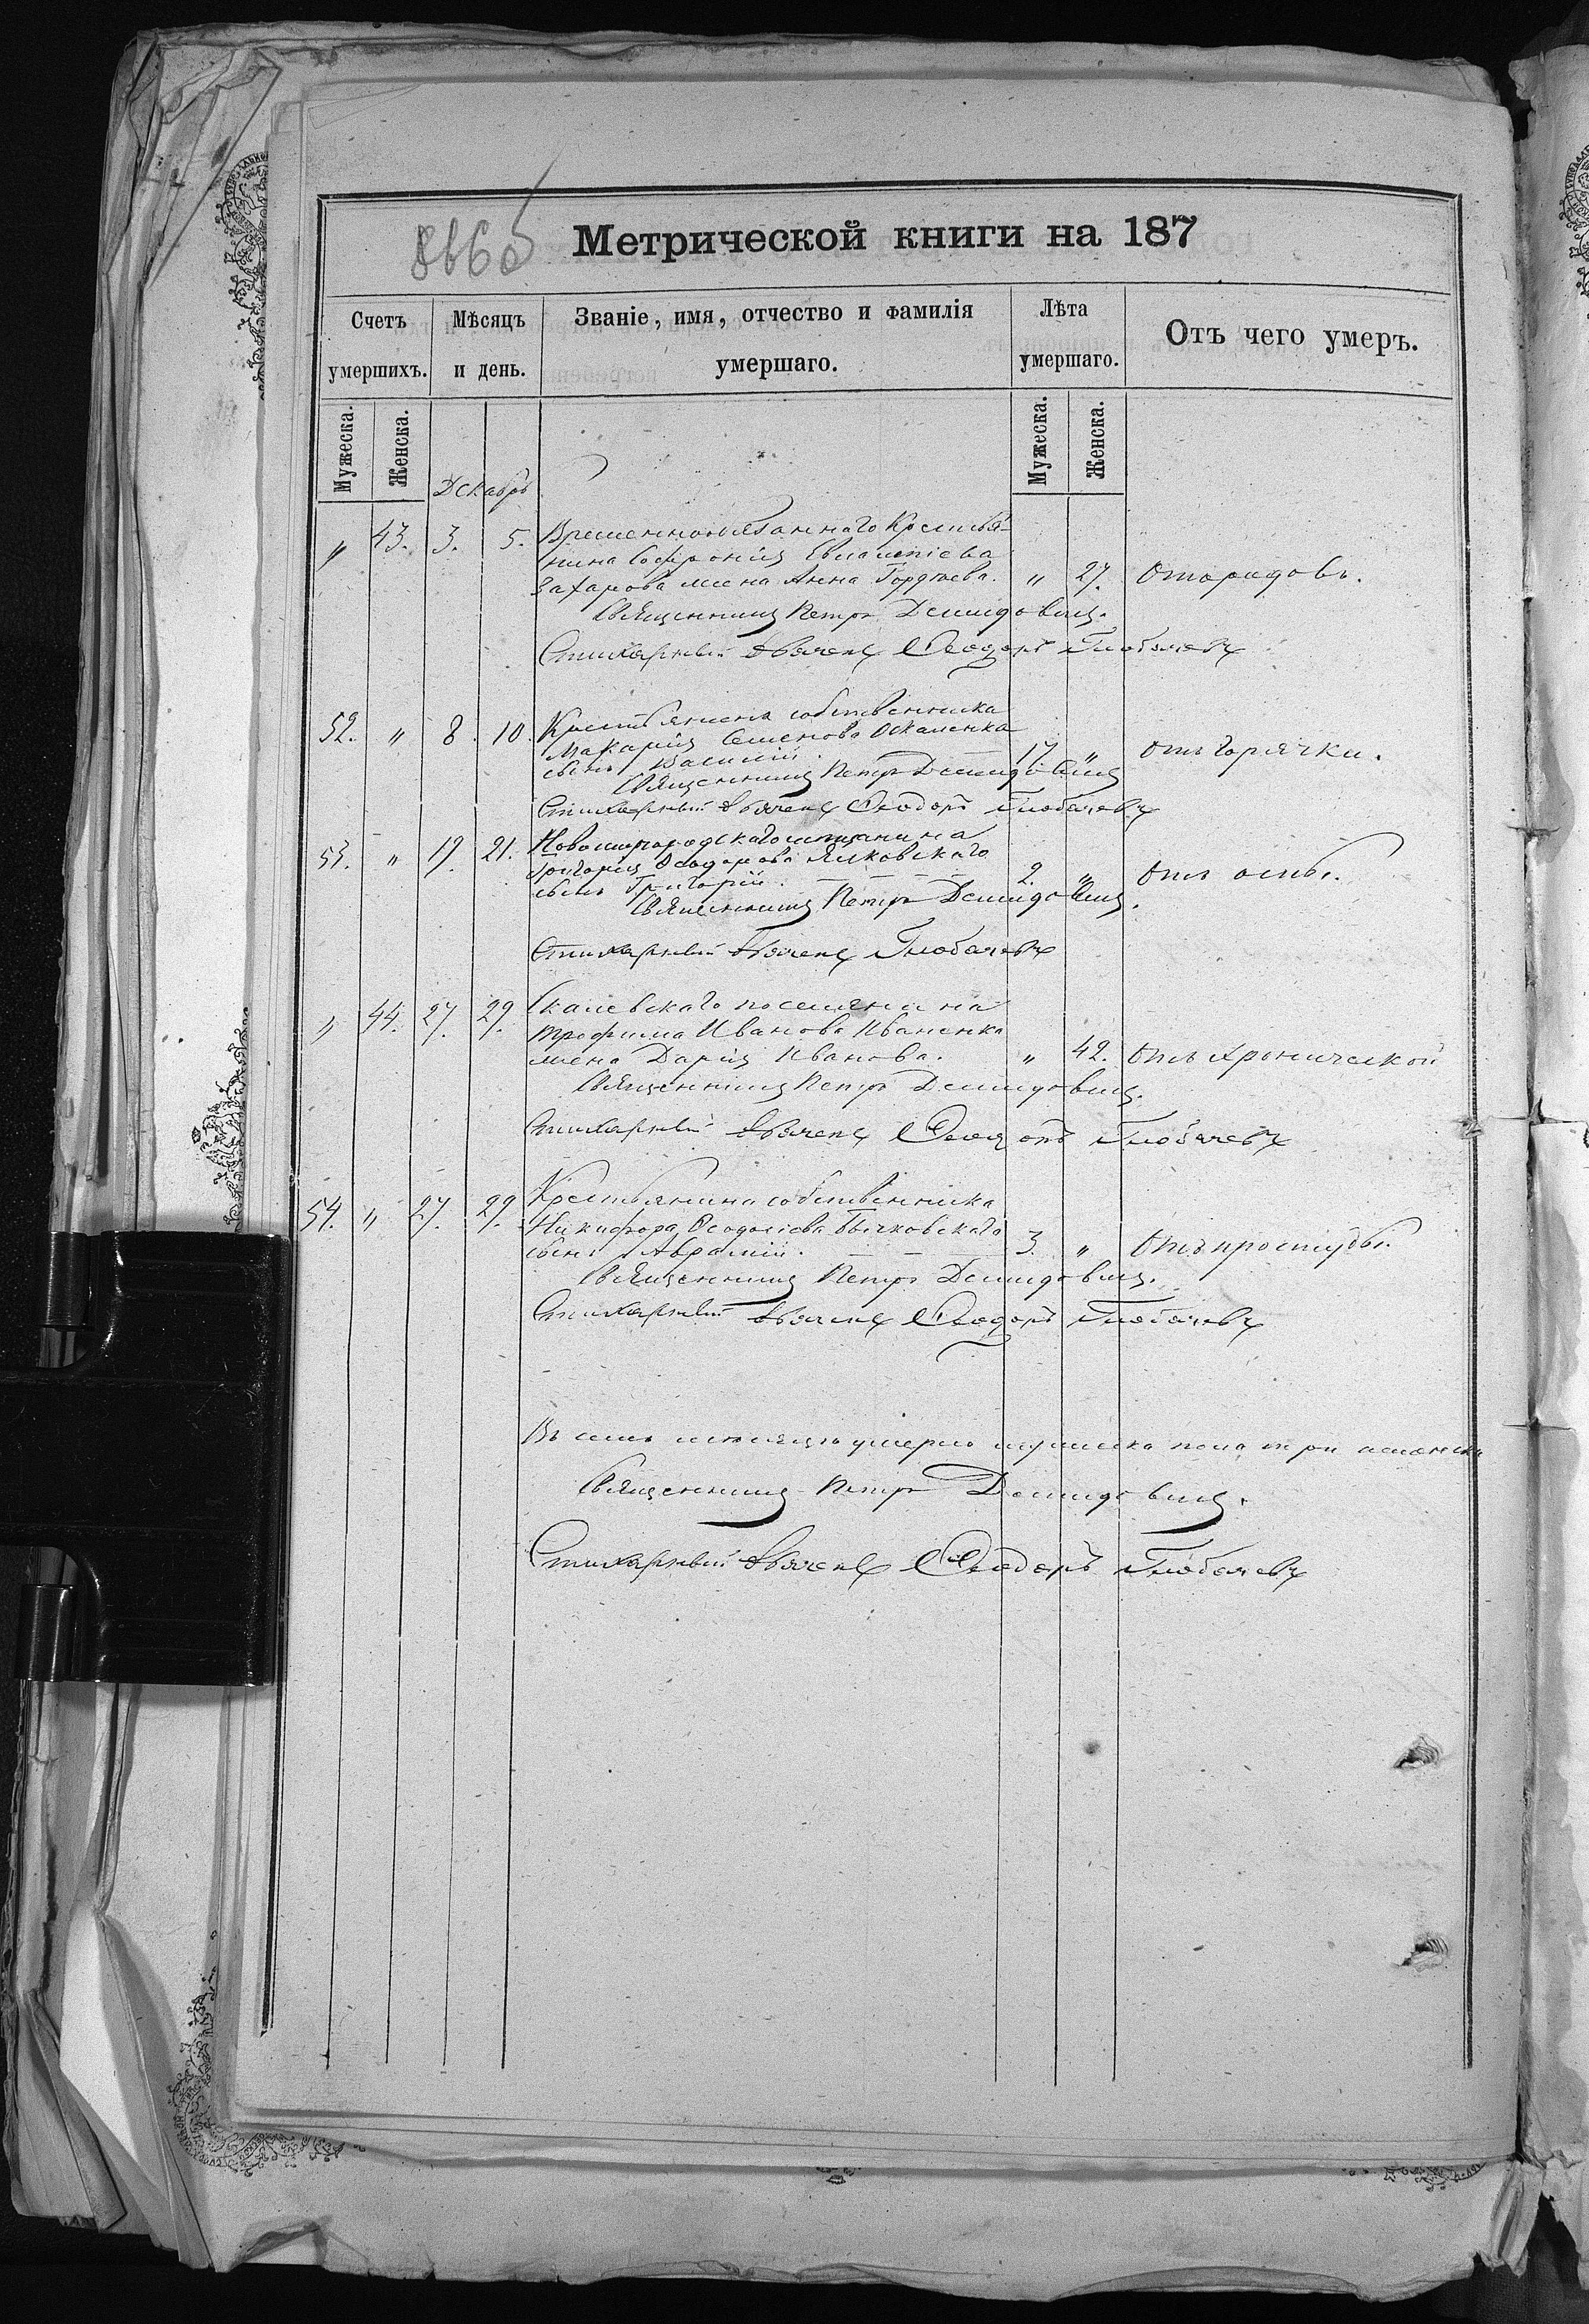 866об
Метрической книги на 187
Счетъ умершихъ.
Мѣсяцъ и день.
Званіе, имя, отчество и фамилія умершаго.
Лѣта умершаго.
Отъ чего умеръ.
Мужеска.
Женска.
Мужеска.
Женска.
Декабрь
" 43. 3. 5. Временнообязаннаго Крестья-
нина Софронія
Захарова жена Анна Гордѣева. " 27. Отъ родовъ.
Священникъ Петръ Демидовичъ.
Стихарный дьячекъ Ѳеодоръ Глобачевъ
52. " 8. 10. Крестьянина собственника
Макарія Семенова Оскаленка
сынъ Василій. 17. " отъ горячки.
Священникъ Петръ Демидовичъ
Стихарный дьячекъ Ѳеодоръ Глобачевъ
53. " 19. 21. Новомиргородскаго мѣщанина
Григорія Ѳеодорова Ялковскаго
сынъ Григорій. 2. " Отъ оспы.
Священникъ Петръ Демидовичъ.
Стихарный дьячекъ Глобачевъ
" 44. 27. 29. Скалевскаго поселянина
Трофима Иванова Иваненка
жена Дарія Иванова. " 42. Отъ хронической
Священникъ Петръ Демидовичъ.
Стихарный дьячекъ Ѳеодоръ Глобачевъ
54. " 27. 29. Крестьянина собственника
Никифора Ѳеодосіева Бычковскаго
сынъ Аврамій. 3. " Отъ простуды.
Священникъ Петръ Демидовичъ.
Стихарный дьячекъ Ѳеодоръ Глобачевъ
Въ семъ мѣсяцѣ умерло мужеска пола три а женска
Священникъ Петръ Демидовичъ.
Стихарный дьячекъ Ѳеодоръ Глобачевъ